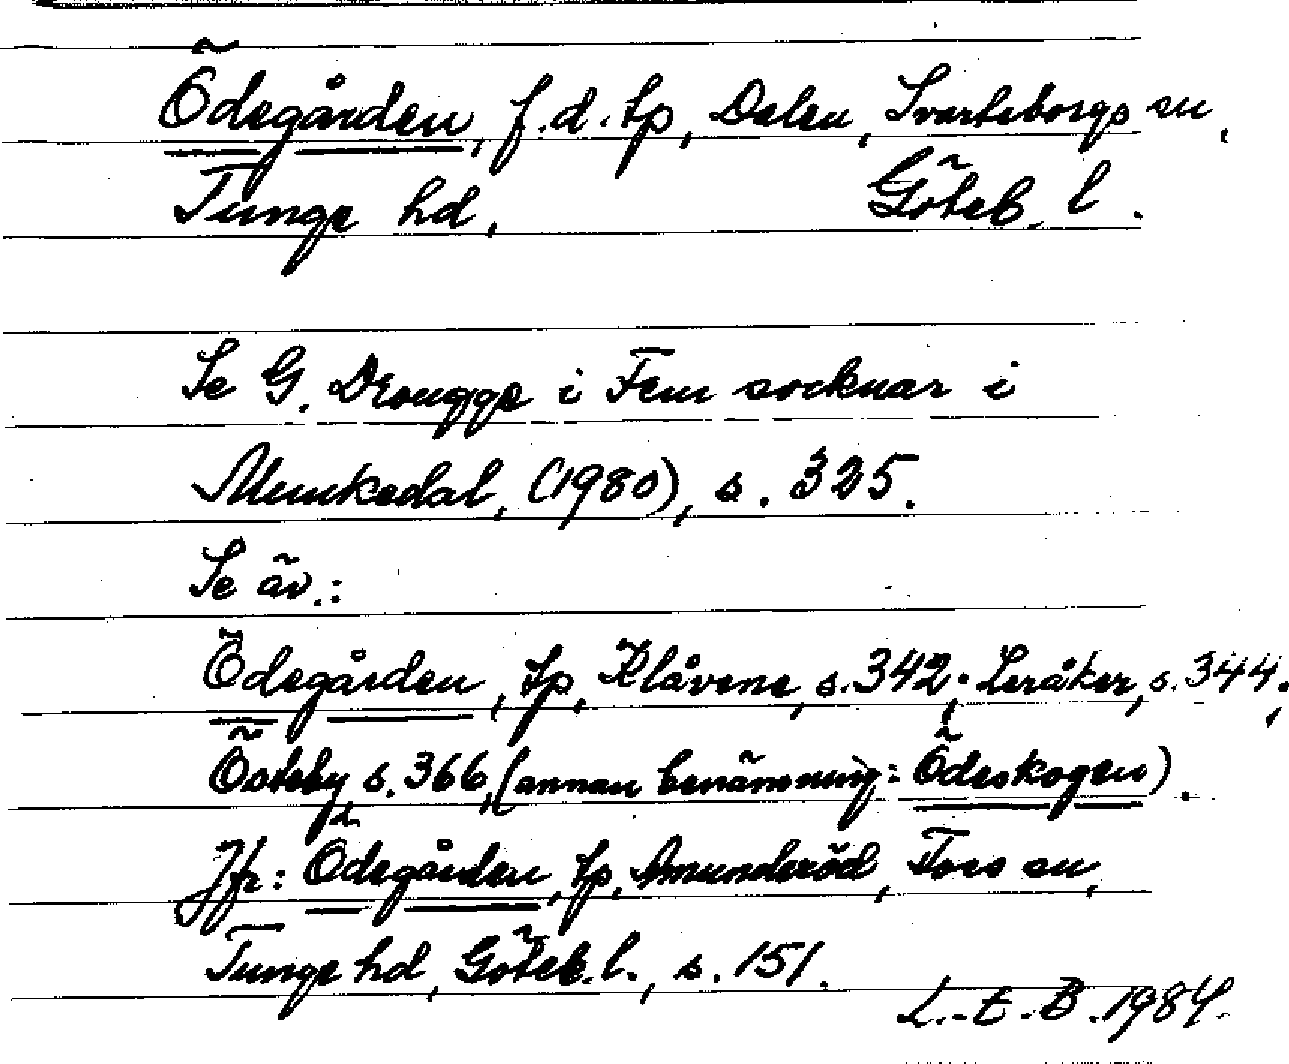 Ödegården, f.d. tp, Dalen, Svarteborgs sn,
Tunge hd, Göteb. l.
Se G. Drougge i Fem socknar i
Munkedal, (1980), s. 325.
Se äv.:
Ödegården, tp, Klåvene, s. 342; Leråker, s. 344;
Östeby, s. 366, (annan benämning: Ödeskogen).
Jfr: Ödegården, tp, Amunderöd, Foss sn,
Tunge hd, Göteb. l., s. 151.
L.-E. B. 1984.